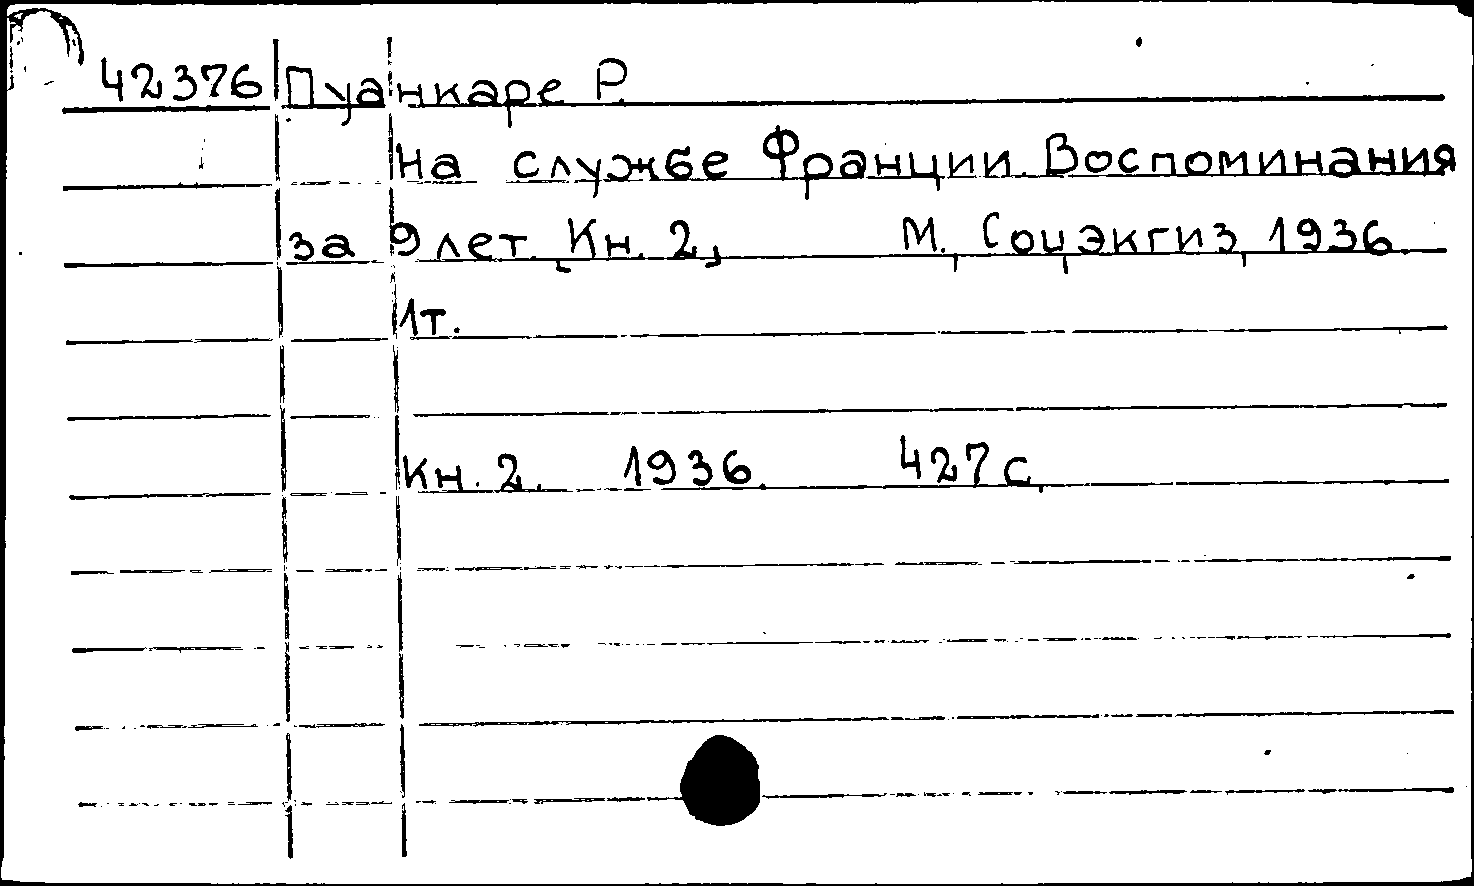 42376 Пуанкаре Р.
На службе Франции. Воспоминания
за 9 лет. [Кн. 2] М., Соцэкгиз, 1936.
1т.
Кн. 2. 1936. 427 с.